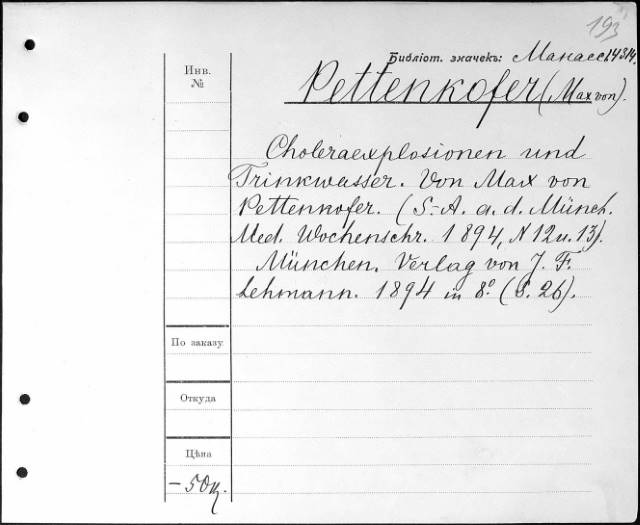 193
Библіот. значекъ: Манасс. 14314.
Инв.
№
Pettenkofer (Max von).
Choleraexplosionen und
Trinkwasser. Von Max von
Pettenkofer. (S.-A. a. d. Münch.
Med. Wochenschr. 1894, N 12 u. 13).
München. Verlag von J. F.
Lehmann. 1894 in 8º (S. 26).
По заказу
Откуда
Цѣна
— 50 к.